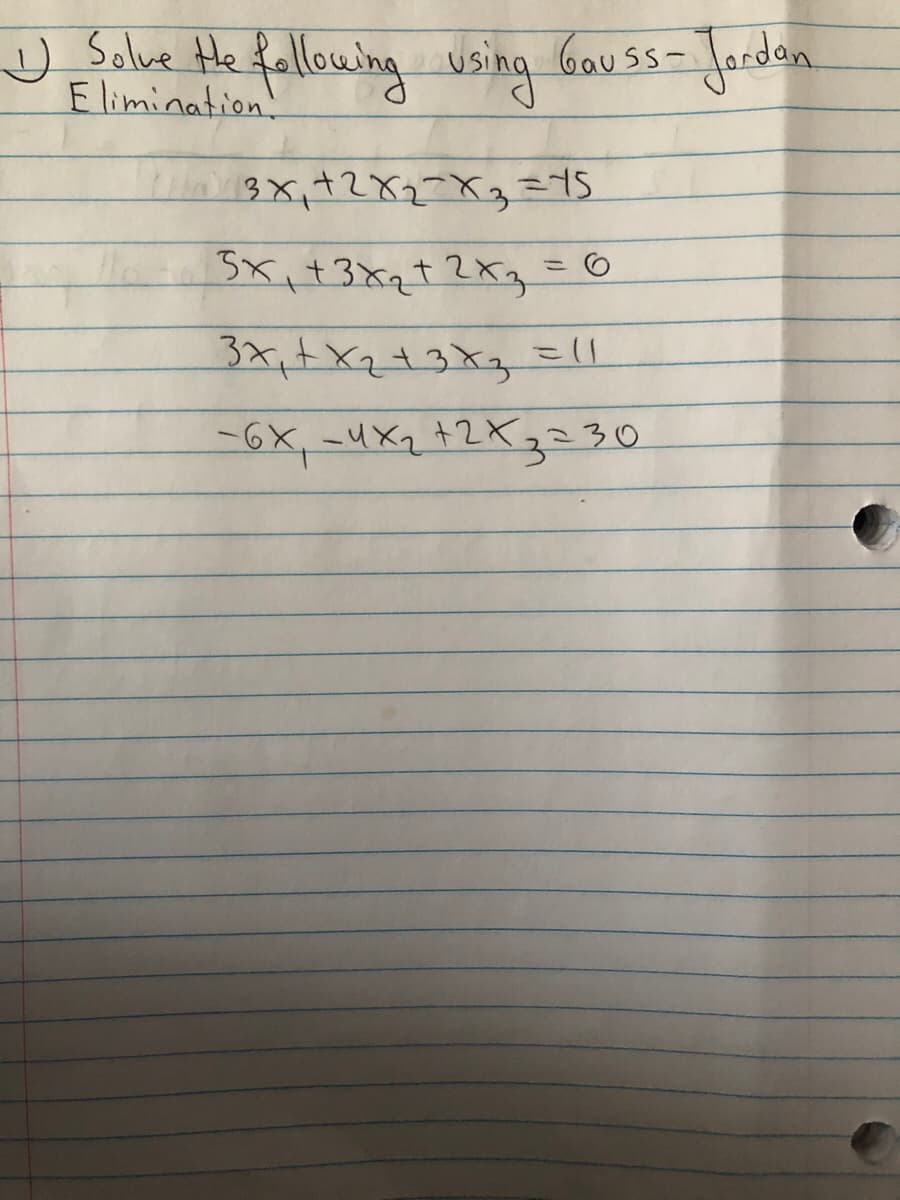 1) Solve the following using Gauss-Jordan
Elimination:
3x₁+2x₂-x₃=-15
5x₁+3x₂+2x₃=0
3x₁+x₂+3x₃=11
-6x₁-4x₂+2x₃=30